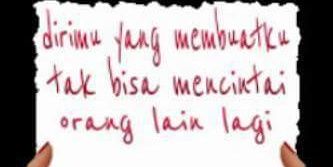 dirimu yang membuatku
tak bisa mencintai
orang lain lagi